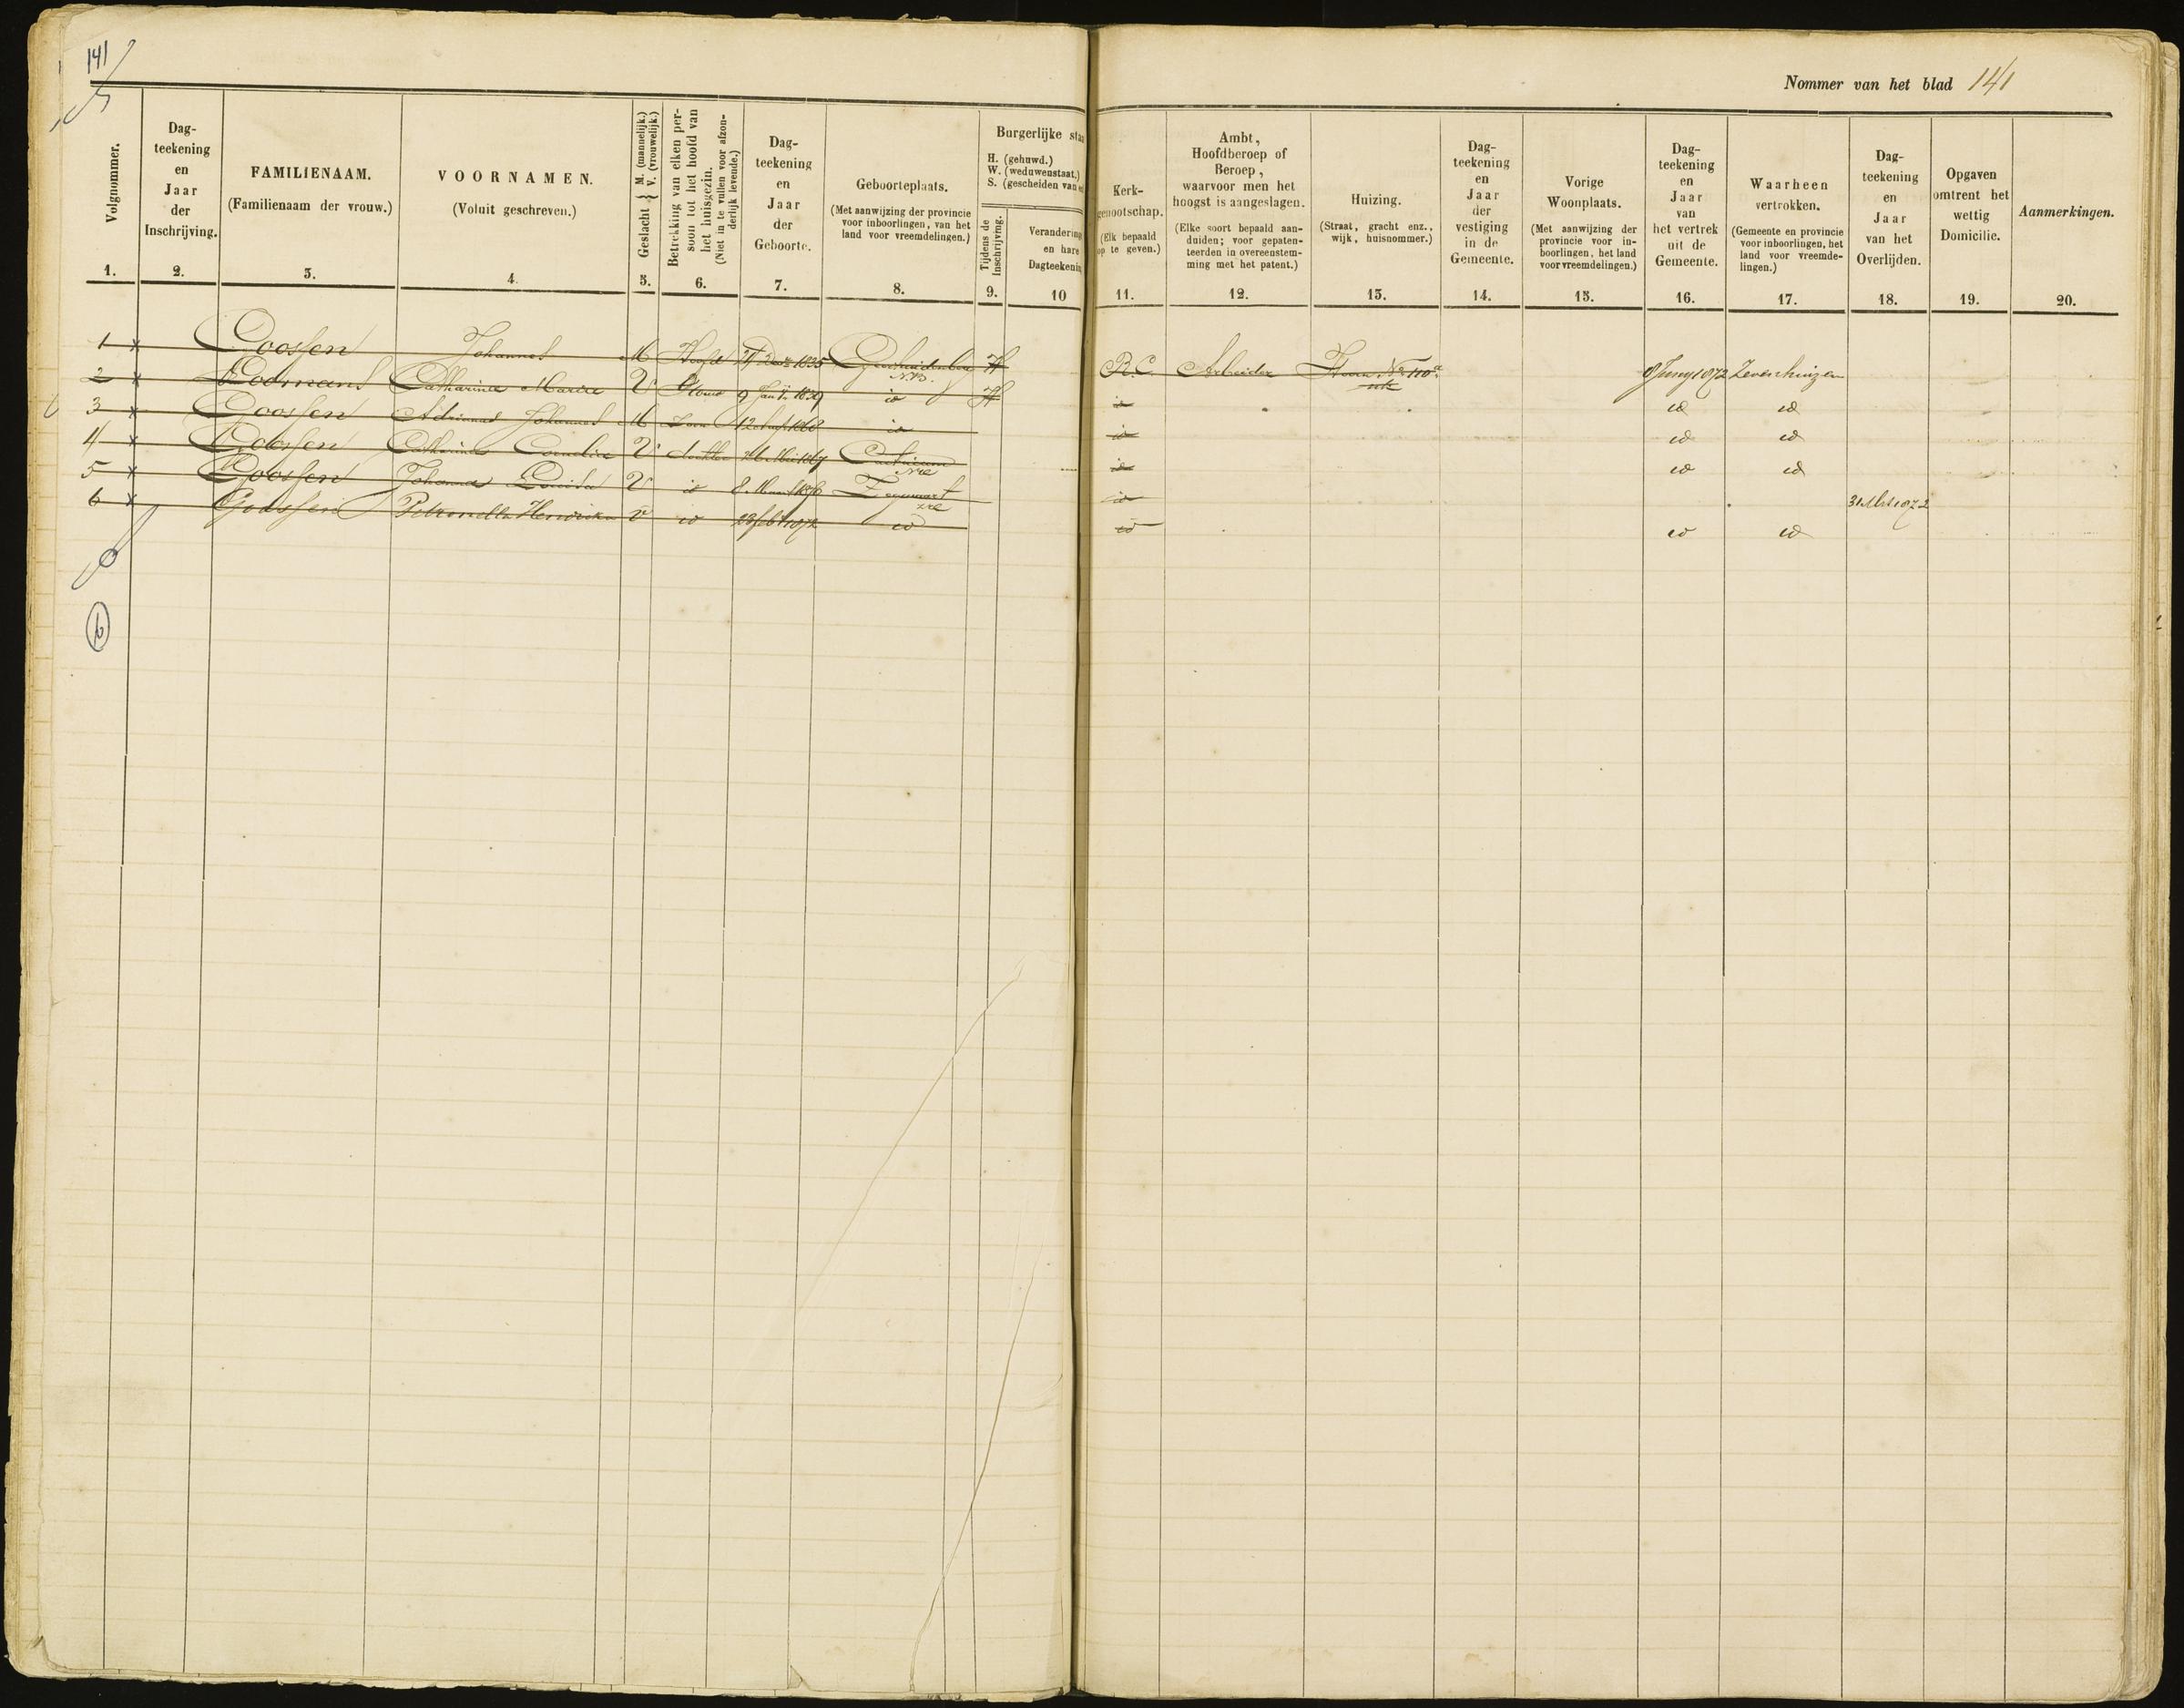 141
Nommer van het blad 141
Volgnommer.
1.
Dag-
teekening
en
Jaar
der
Inschrijving.
2.
FAMILIENAAM.
(Familienaam der vrouw.)
3.
VOORNAMEN.
(Voluit geschreven.)
4.
Geslacht { M. (mannelijk.)
V. (vrouwelijk.)
5.
Betrekking van elken per-
soon tot het hoofd van
het huisgezin.
(Niet in te vullen voor afzon-
derlijk levende.)
6.
Dag-
teekening
en
Jaar
der
Geboorte.
7.
Geboorteplaats.
(Met aanwijzing der provincie
voor inboorlingen, van het
land voor vreemdelingen.)
8.
Burgerlijke sta
H. (gehuwd.)
W. (weduwenstaat.)
S. (gescheiden van
Tijdens de
Inschrijving.
9.
Verandering
en hare
Dagteekening
10
Kerk-
genootschap.
(Elk bepaald
op te geven.)
11.
Ambt,
Hoofdberoep of
Beroep,
waarvoor men het
hoogst is aangeslagen.
(Elke soort bepaald aan-
duiden; voor gepaten-
teerden in overeenstem-
ming met het patent.)
12.
Huizing.
(Straat, gracht enz.,
wijk, huisnommer.)
13.
Dag-
teekening
en
Jaar
der
vestiging
in de
Gemeente.
14.
Vorige
Woonplaats.
(Met aanwijzing der
provincie voor in-
boorlingen, het land
voor vreemdelingen.)
15.
Dag-
teekening
en
Jaar
van
het vertrek
uit de
Gemeente.
16.
Waarheen
vertrokken.
(Gemeente en provincie
voor inboorlingen, het
land voor vreemde-
lingen.)
17.
Dag-
teekening
en
Jaar
van het
Overlijden.
18.
Opgaven
omtrent het
wettig
Domicilie.
19.
Aanmerkingen.
20.
1 x Goossen Johannes M Hoofd 1835 N.B. H R.C. Arbeider 8 Juny 1872 Zevenhuizen
2 x Catharina Maria V 9 Jan 1839 id H id id id
3 x Goossen Adrianus Johannes M Zoon 12 1860 id id id id
4 x Goossen Catharina Cornelia V dochter Castricum id id id
5 x Goossen Johanna V id id 31 Mrt 1872
6 x Goossen Petronella Hendrika V id 28 feb 1872 id id id id
6